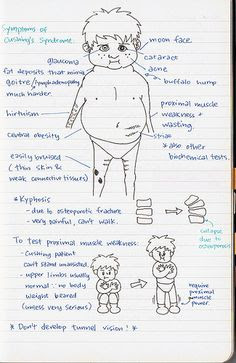 Symptoms of
Cushing's Syndrome:
moon face.
cataract
glaucoma
acne
fat deposits that mimic
goitre/lymphadenopathy
much harder.
buffalo hump
hirtuism
proximal muscle
weakness +
wasting.
central obesity
striae
* also other
biochemical tests.
easily bruised
(thin skin &
weak connective tissues)
* Kyphosis
- due to osteoporotic fracture
- very painful, can't walk.
collapse
due to
osteoporosis
To test proximal muscle weakness:
- Cushing patient
can't stand unassisted.
- upper limbs usually
normal : no body
weight beared
(unless very serious)
require
proximal
muscle
power.
* Don't develop tunnel vision! *